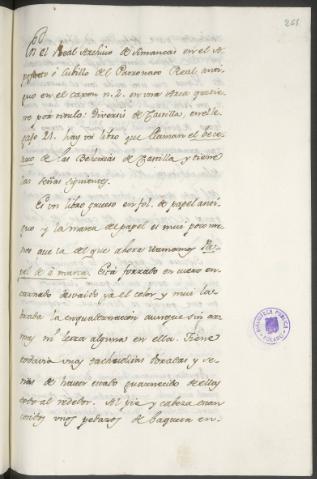 261
En el Real Archivo de Simancas en el A
posento ó Cubillo del Patronato Real anti
guo en el caxon n. 2. en una Arca que tie
ne por titulo: Diversos de Castilla, en el le
gajo 21. hay un libro que llaman el Bece
rro de las Behetrias de Castilla, y tiene
las señas siguientes.
Es un libro grueso en fol. de papel anti
guo y la marca del papel es mui poco me
nos que la del que ahora llamamos Pa
pel de marca. Está forrado en cuero en
carnado desvaido ya el color, y mui la
brada la enquadernacion aunque sin ar
mas ni letra alguna en ella. Tiene
todavia unas tachuelitas doradas y se
ñas de haver estado guarnecido de ellas
todo al rededor. Al pie y cabeza
unos pedazos de baqueta en-
BIBLIOTECA PUBLICA
TOLEDO